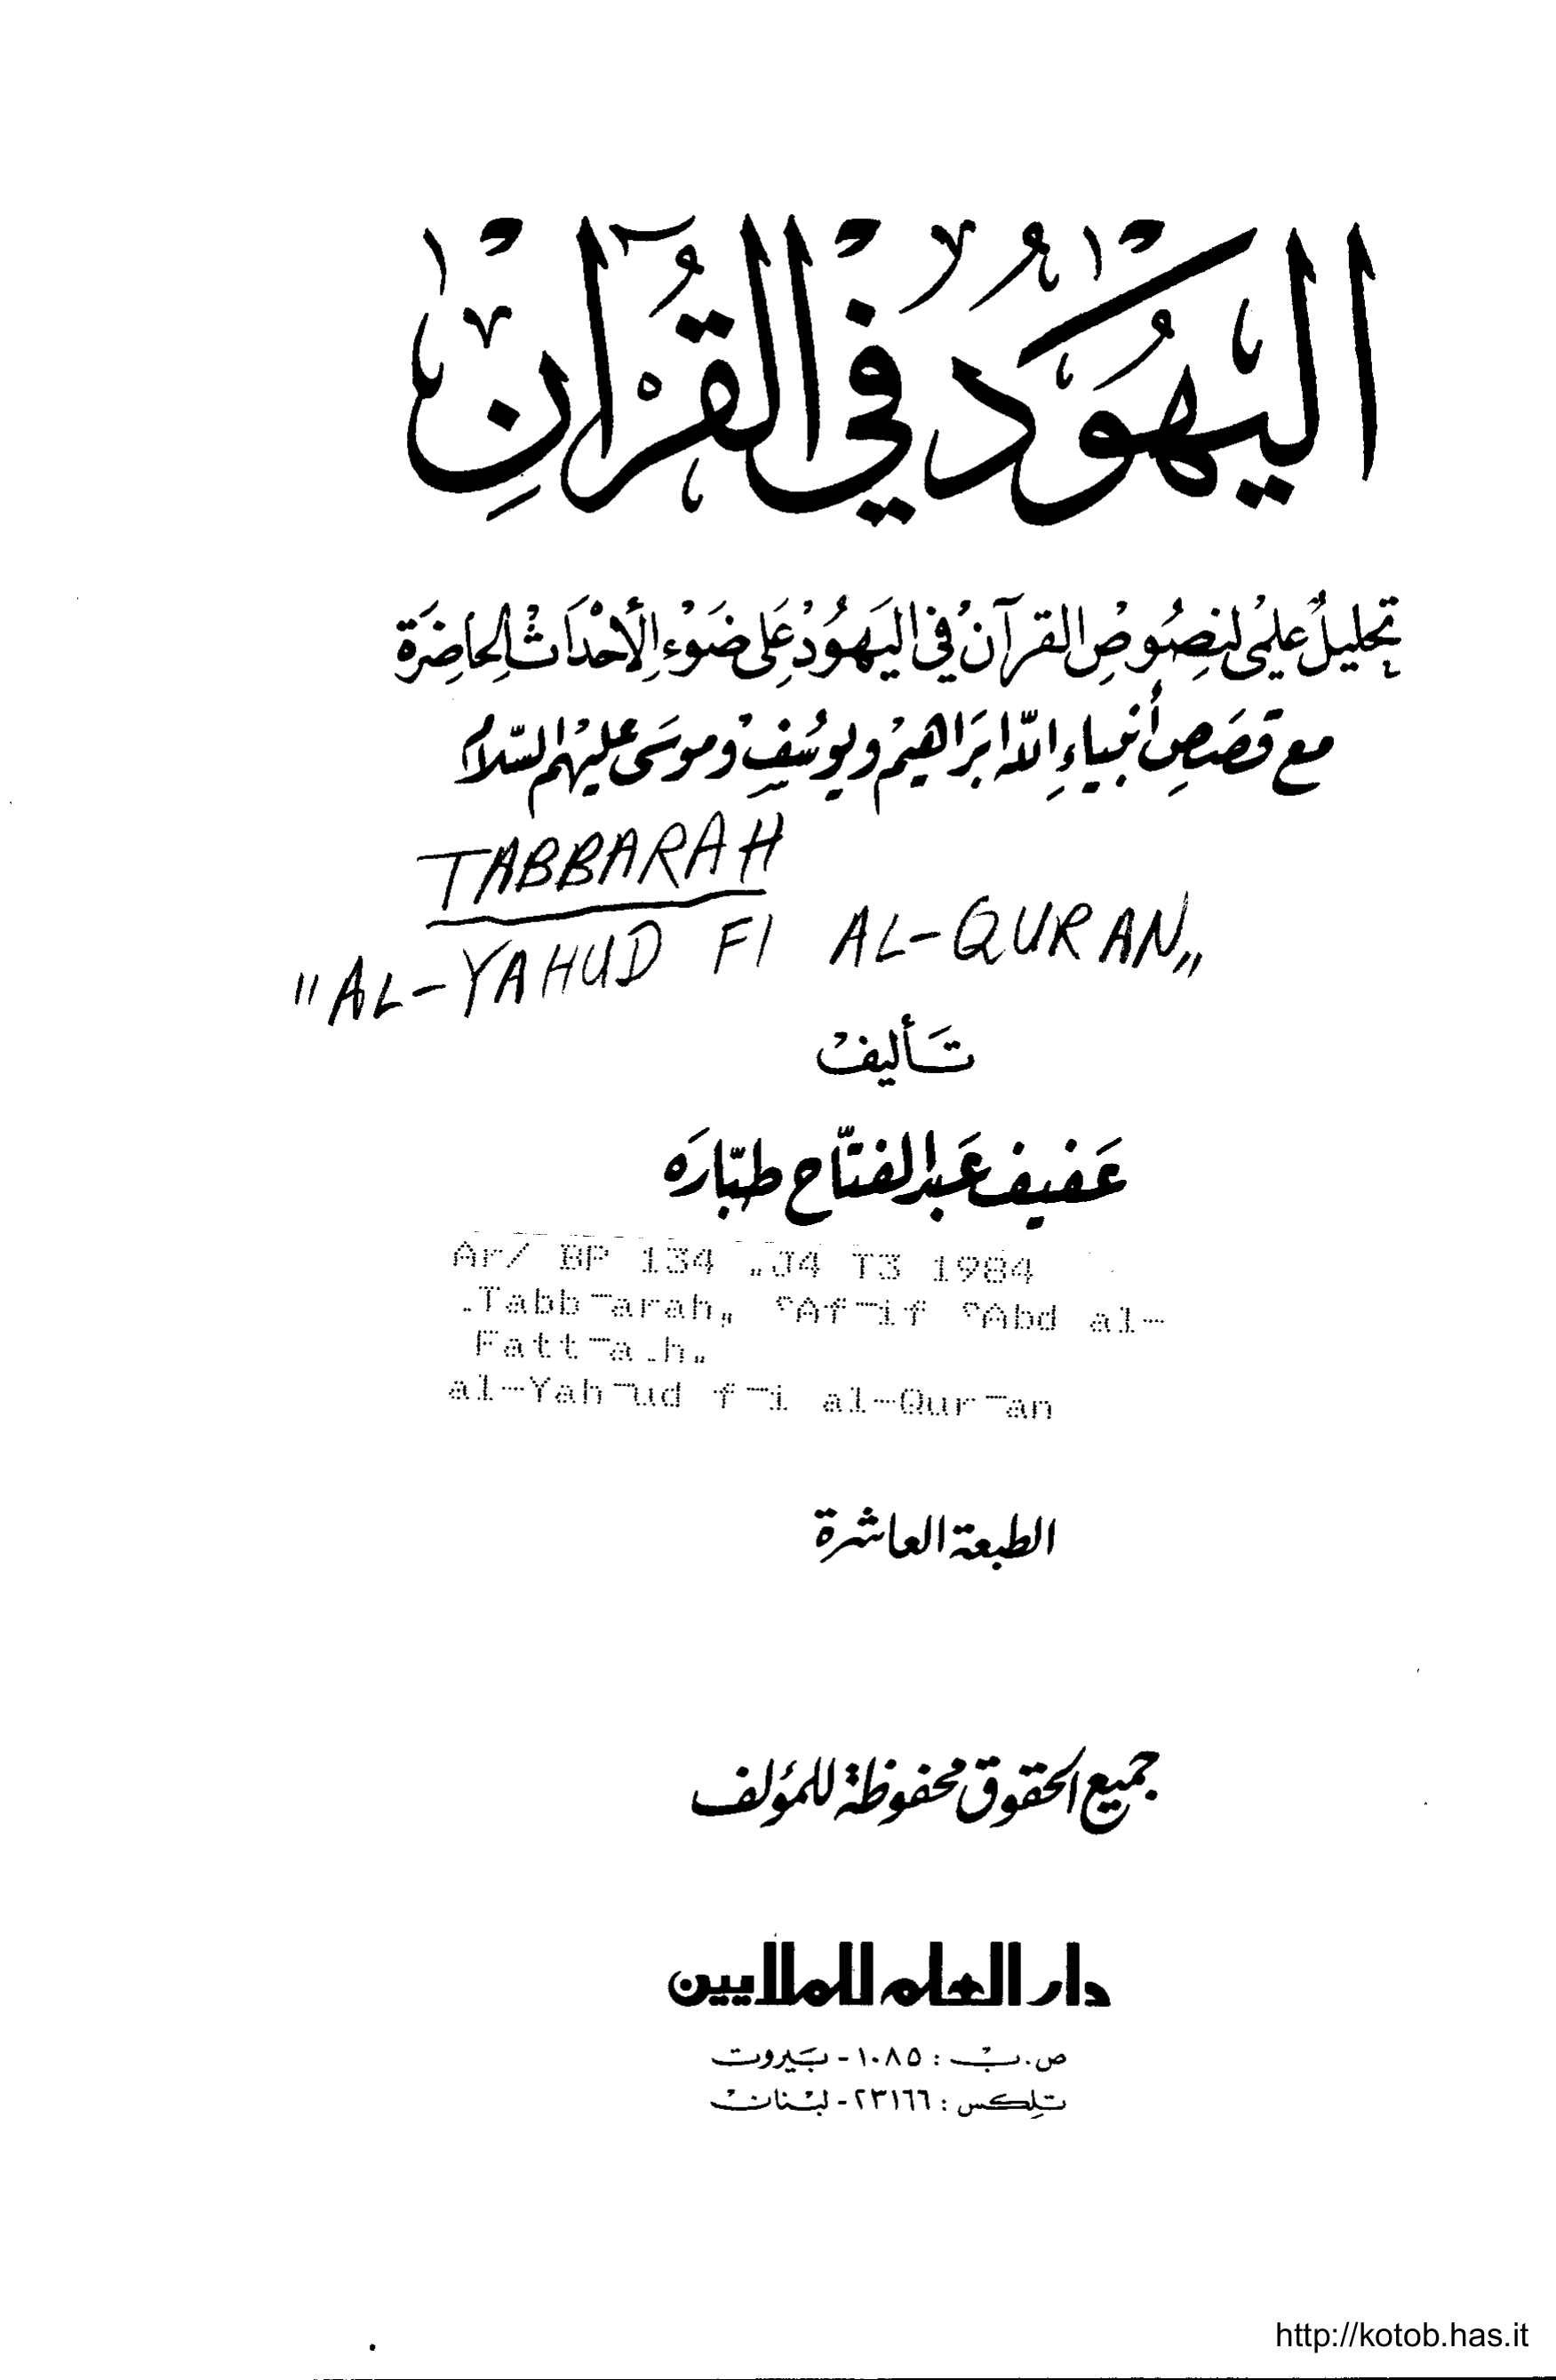 اليهود في القرآن
تحليل علمي لنصوص القرآن في اليهود على ضوء الأحداث الحاضرة
مع قصص أنبياء الله ابراهيم ويوسف وموسى عليهم السلام
TABBARAH
"AL-YAHUD FI AL-QURAN"
تأليف
عفيف عبد الفتاح طبّاره
Ar/ BP 134 .J4 T3 1984
.Tabb¯arah, ʿAf¯if ʿAbd al-
Fatt¯a.h.
al-Yah¯ud f¯i al-Qur¯an
الطبعة العاشرة
جميع الحقوق محفوظة للمؤلف
دار العلم للملايين
ص.ب : ١٠٨٥ - بيروت
تلكس : ٢٣١٦٦ - لبنان
http://kotob.has.it